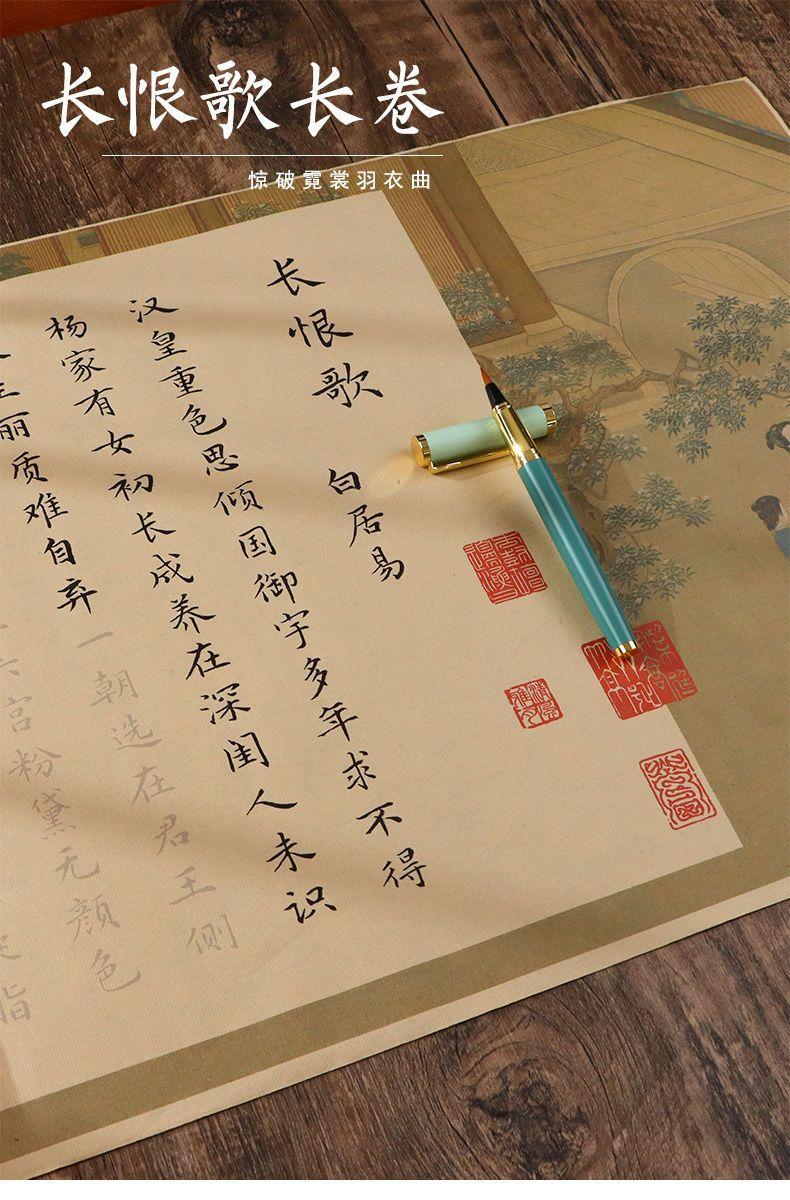 长恨歌长卷
惊破霓裳羽衣曲
长恨歌 白居易
汉皇重色思倾国御宇多年求不得
杨家有女初长成养在深闺人未识
生丽质难自弃一朝选在君王侧
宫粉黛无颜色
指